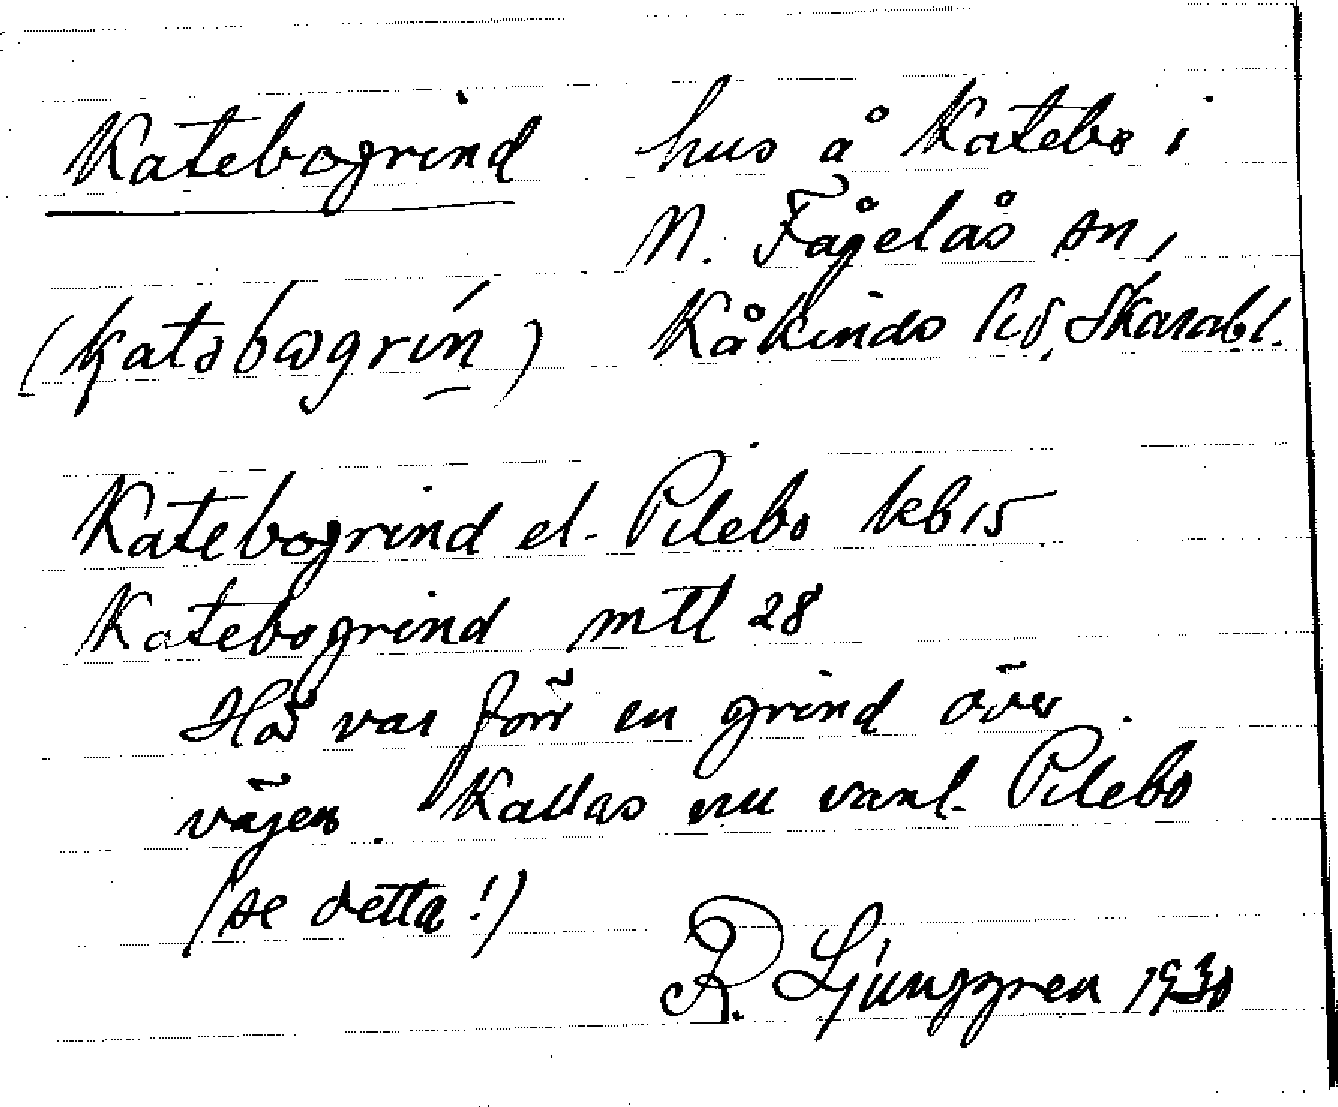 Katebogrind hus å Katebo i
N. Fågelås sn,
(katəbωgrín) Kåkinds hd, Skarabl.
Katebogrind el. Pilebo kb 15
Katebogrind mtl 28
Här var förr en grind över
vägen. Kallas nu vanl. Pilebo
(se detta!)
R. Ljunggren 1930